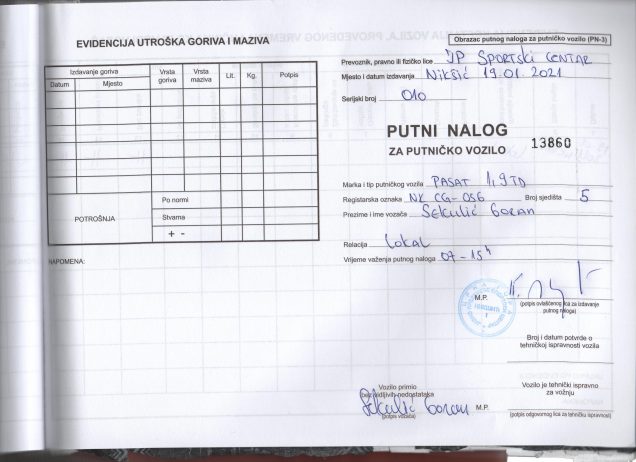 EVIDENCIJA UTROŠKA GORIVA I MAZIVA
Izdavanje goriva
Datum Mjesto
Vrsta goriva
Vrsta maziva
Lit.
Kg.
Potpis
POTROŠNJA
Po normi
Stvarna
+ -
NAPOMENA:
Obrazac putnog naloga za putničko vozilo (PN-3)
Prevoznik, pravno ili fizičko lice JP SPORTSKI CENTAR
Mjesto i datum izdavanja Nikšić 19.01.2021
Serijski broj 010
PUTNI NALOG
ZA PUTNIČKO VOZILO 13860
Marka i tip putničkog vozila PASAT 1,9 TD
Registarska oznaka NK CG-056 Broj sjedišta 5
Prezime i ime vozača Sekulić Goran
Relacija Lokal
Vrijeme važenja putnog naloga 07-15h
M.P.
(potpis ovlašćenog lica za izdavanje
putnog naloga)
Broj i datum potvrde o
tehničkoj ispravnosti vozila
Vozilo primio
bez vidljivih nedostataka
Sekulić Goran
(potpis vozača)
M.P.
Vozilo je tehnički ispravno
za vožnju
(potpis odgovornog lica za tehničku ispravnost)